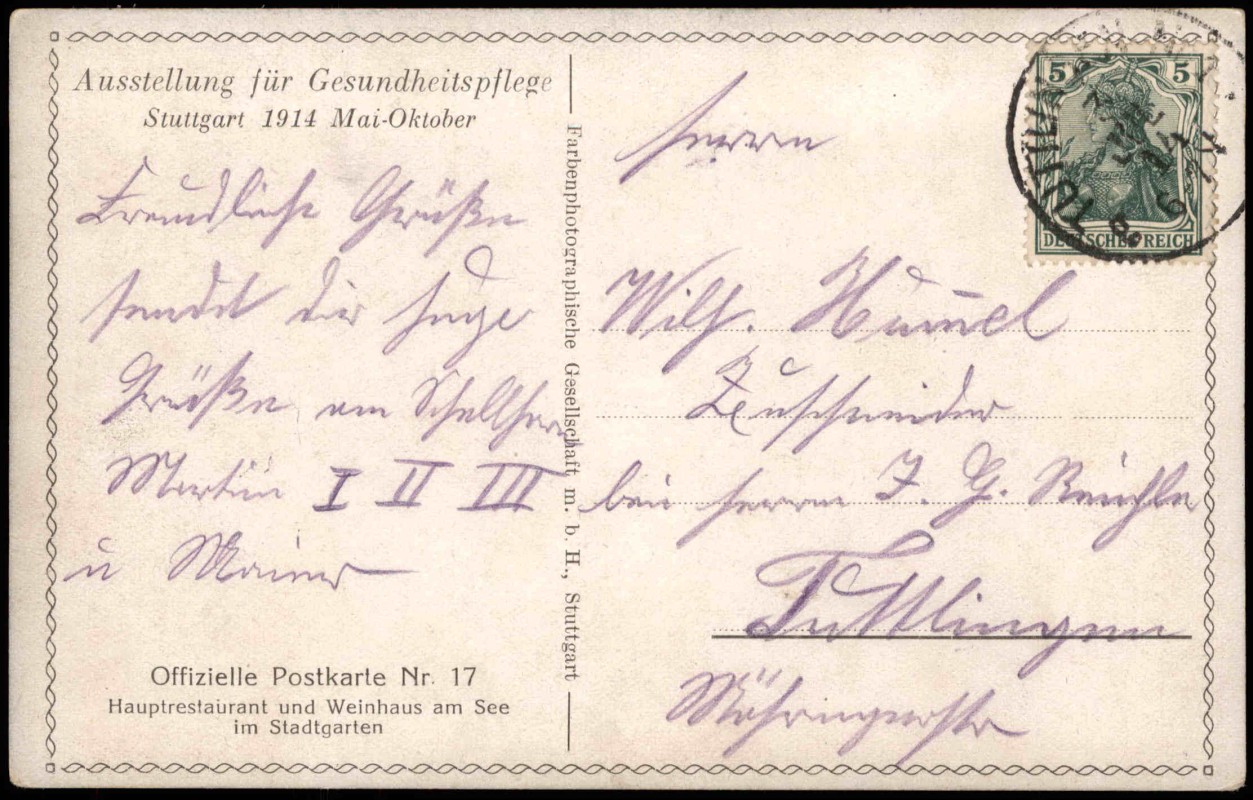 Ausstellung für Gesundheitspflege
Stuttgart 1914 Mai-Oktober
Freundliche Grüße
sendet dir
Grüße am
Martin I II III
u
Offizielle Postkarte Nr. 17
Hauptrestaurant und Weinhaus am See
im Stadtgarten
Farbenphotographische Gesellschaft m. b. H., Stuttgart
5 5
DEUTSCHES REICH
Herrn
Wilh. Hum̄el
Zuschneider
bei Herrn J. G. Reichle
Tuttlingen
Möhringerstr